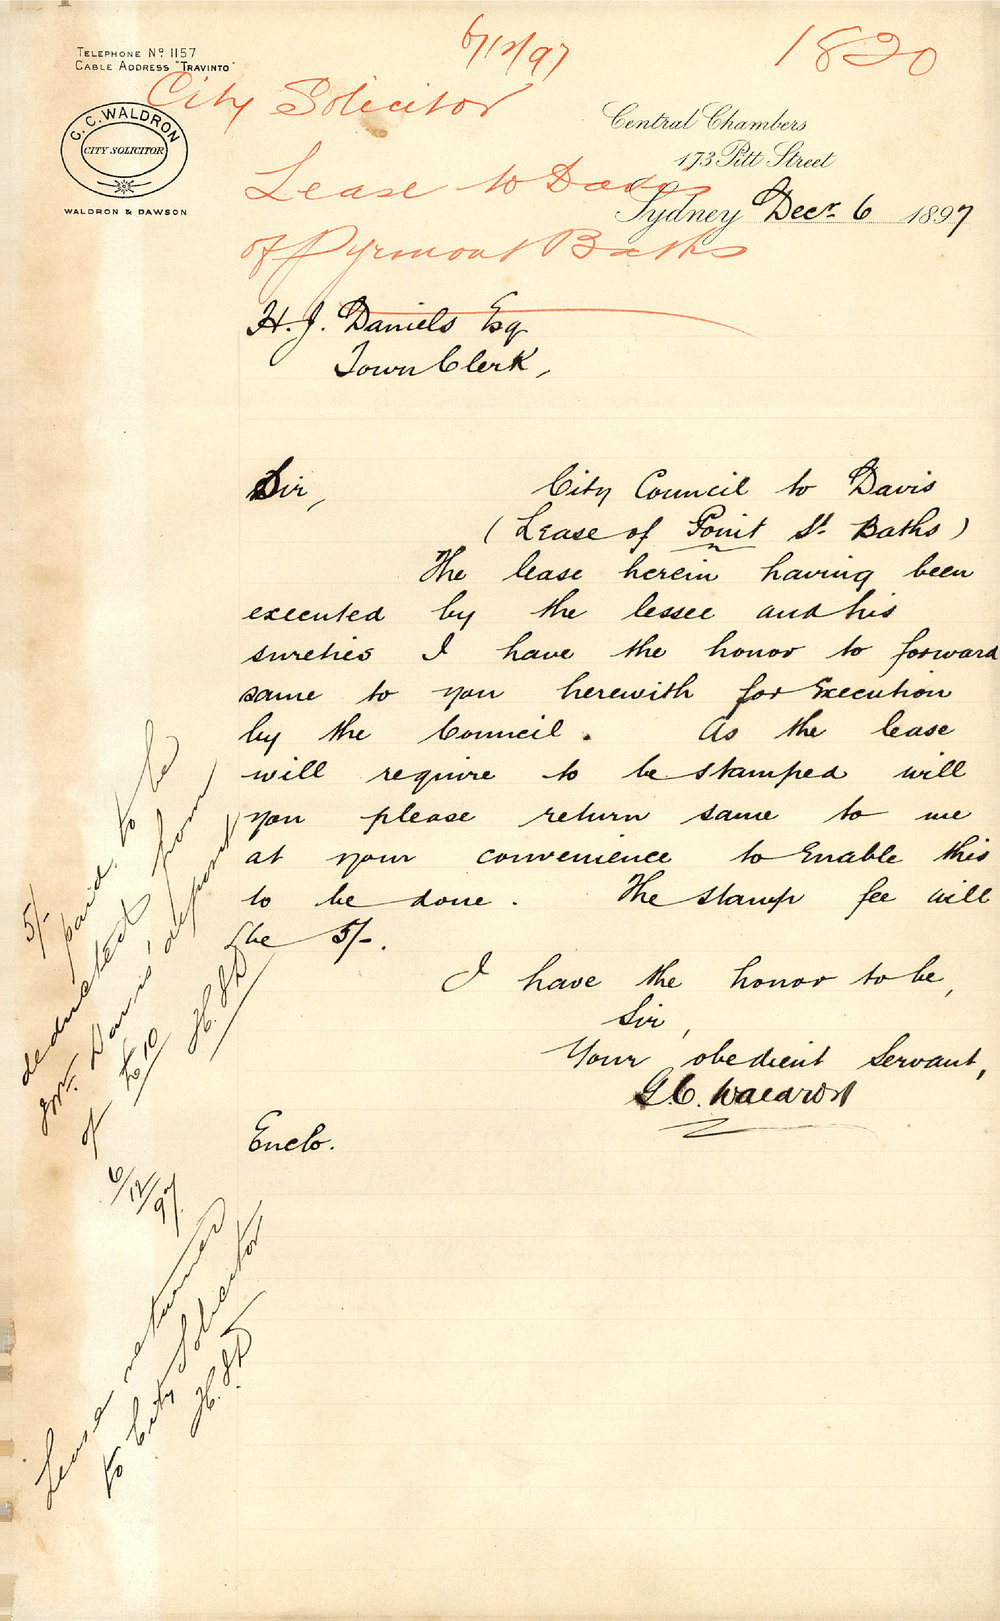 TELEPHONE Nº 1157
CABLE ADDRESS "TRAVINTO"
G. C. WALDRON
CITY SOLICITOR
WALDRON & DAWSON
6/12/97
1820
City Solicitor
Lease to Davis
of Pyrmont Baths
Central Chambers
173 Pitt Street
Sydney Decr. 6 1897
H. J. Daniels Esq
Town Clerk,
Sir,
City Council to Davis
(Lease of Point St Baths)
The lease herein having been
executed by the lessee and his
sureties I have the honor to forward
same to you herewith for execution
by the Council. As the lease
will require to be stamped will
you please return same to me
at your convenience to enable this
to be done. The stamp fee will
be 5/-.
I have the honor to be,
Sir,
Your obedient servant,
G. C. Waldron
Enclo.
5/- paid, to be
deducted from
Mr. Davis' deposit
of £10
H.J.D
6/12/97
Lease returned
to City Solicitor
H.J.D